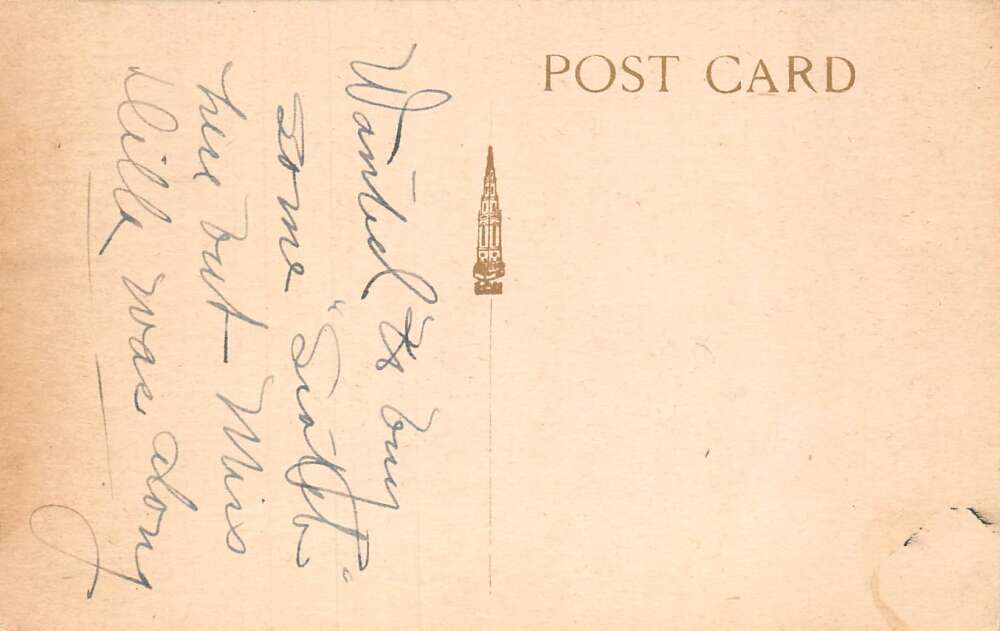 POST CARD
Wanted to buy
some "
here but Miss
was along